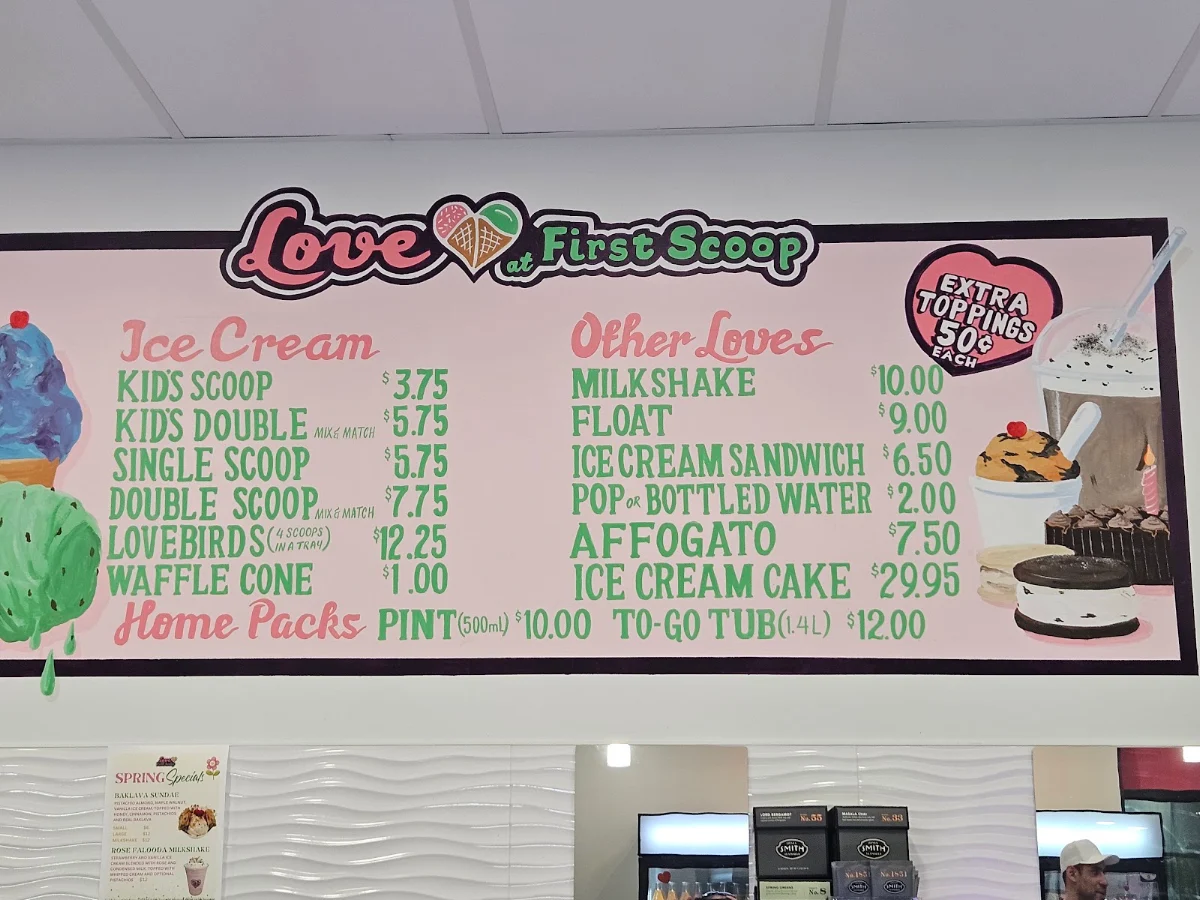 Love at First Scoop
EXTRA
TOPPINGS
50¢
EACH
Ice Cream
KID'S SCOOP $3.75
KID'S DOUBLE MIX & MATCH $5.75
SINGLE SCOOP $5.75
DOUBLE SCOOP MIX & MATCH $7.75
LOVEBIRDS (4 SCOOPS IN A TRAY) $12.25
WAFFLE CONE $1.00
Other Loves
MILKSHAKE $10.00
FLOAT $9.00
ICE CREAM SANDWICH $6.50
POP OR BOTTLED WATER $2.00
AFFOGATO $7.50
ICE CREAM CAKE $29.95
Home Packs PINT (500ml) $10.00 TO-GO TUB (1.4L) $12.00
SPRING Specials
BAKLAVA SUNDAE
ROSE FALOODA MILKSHAKE
No.55
SMITH
No.33
SMITH
No.8